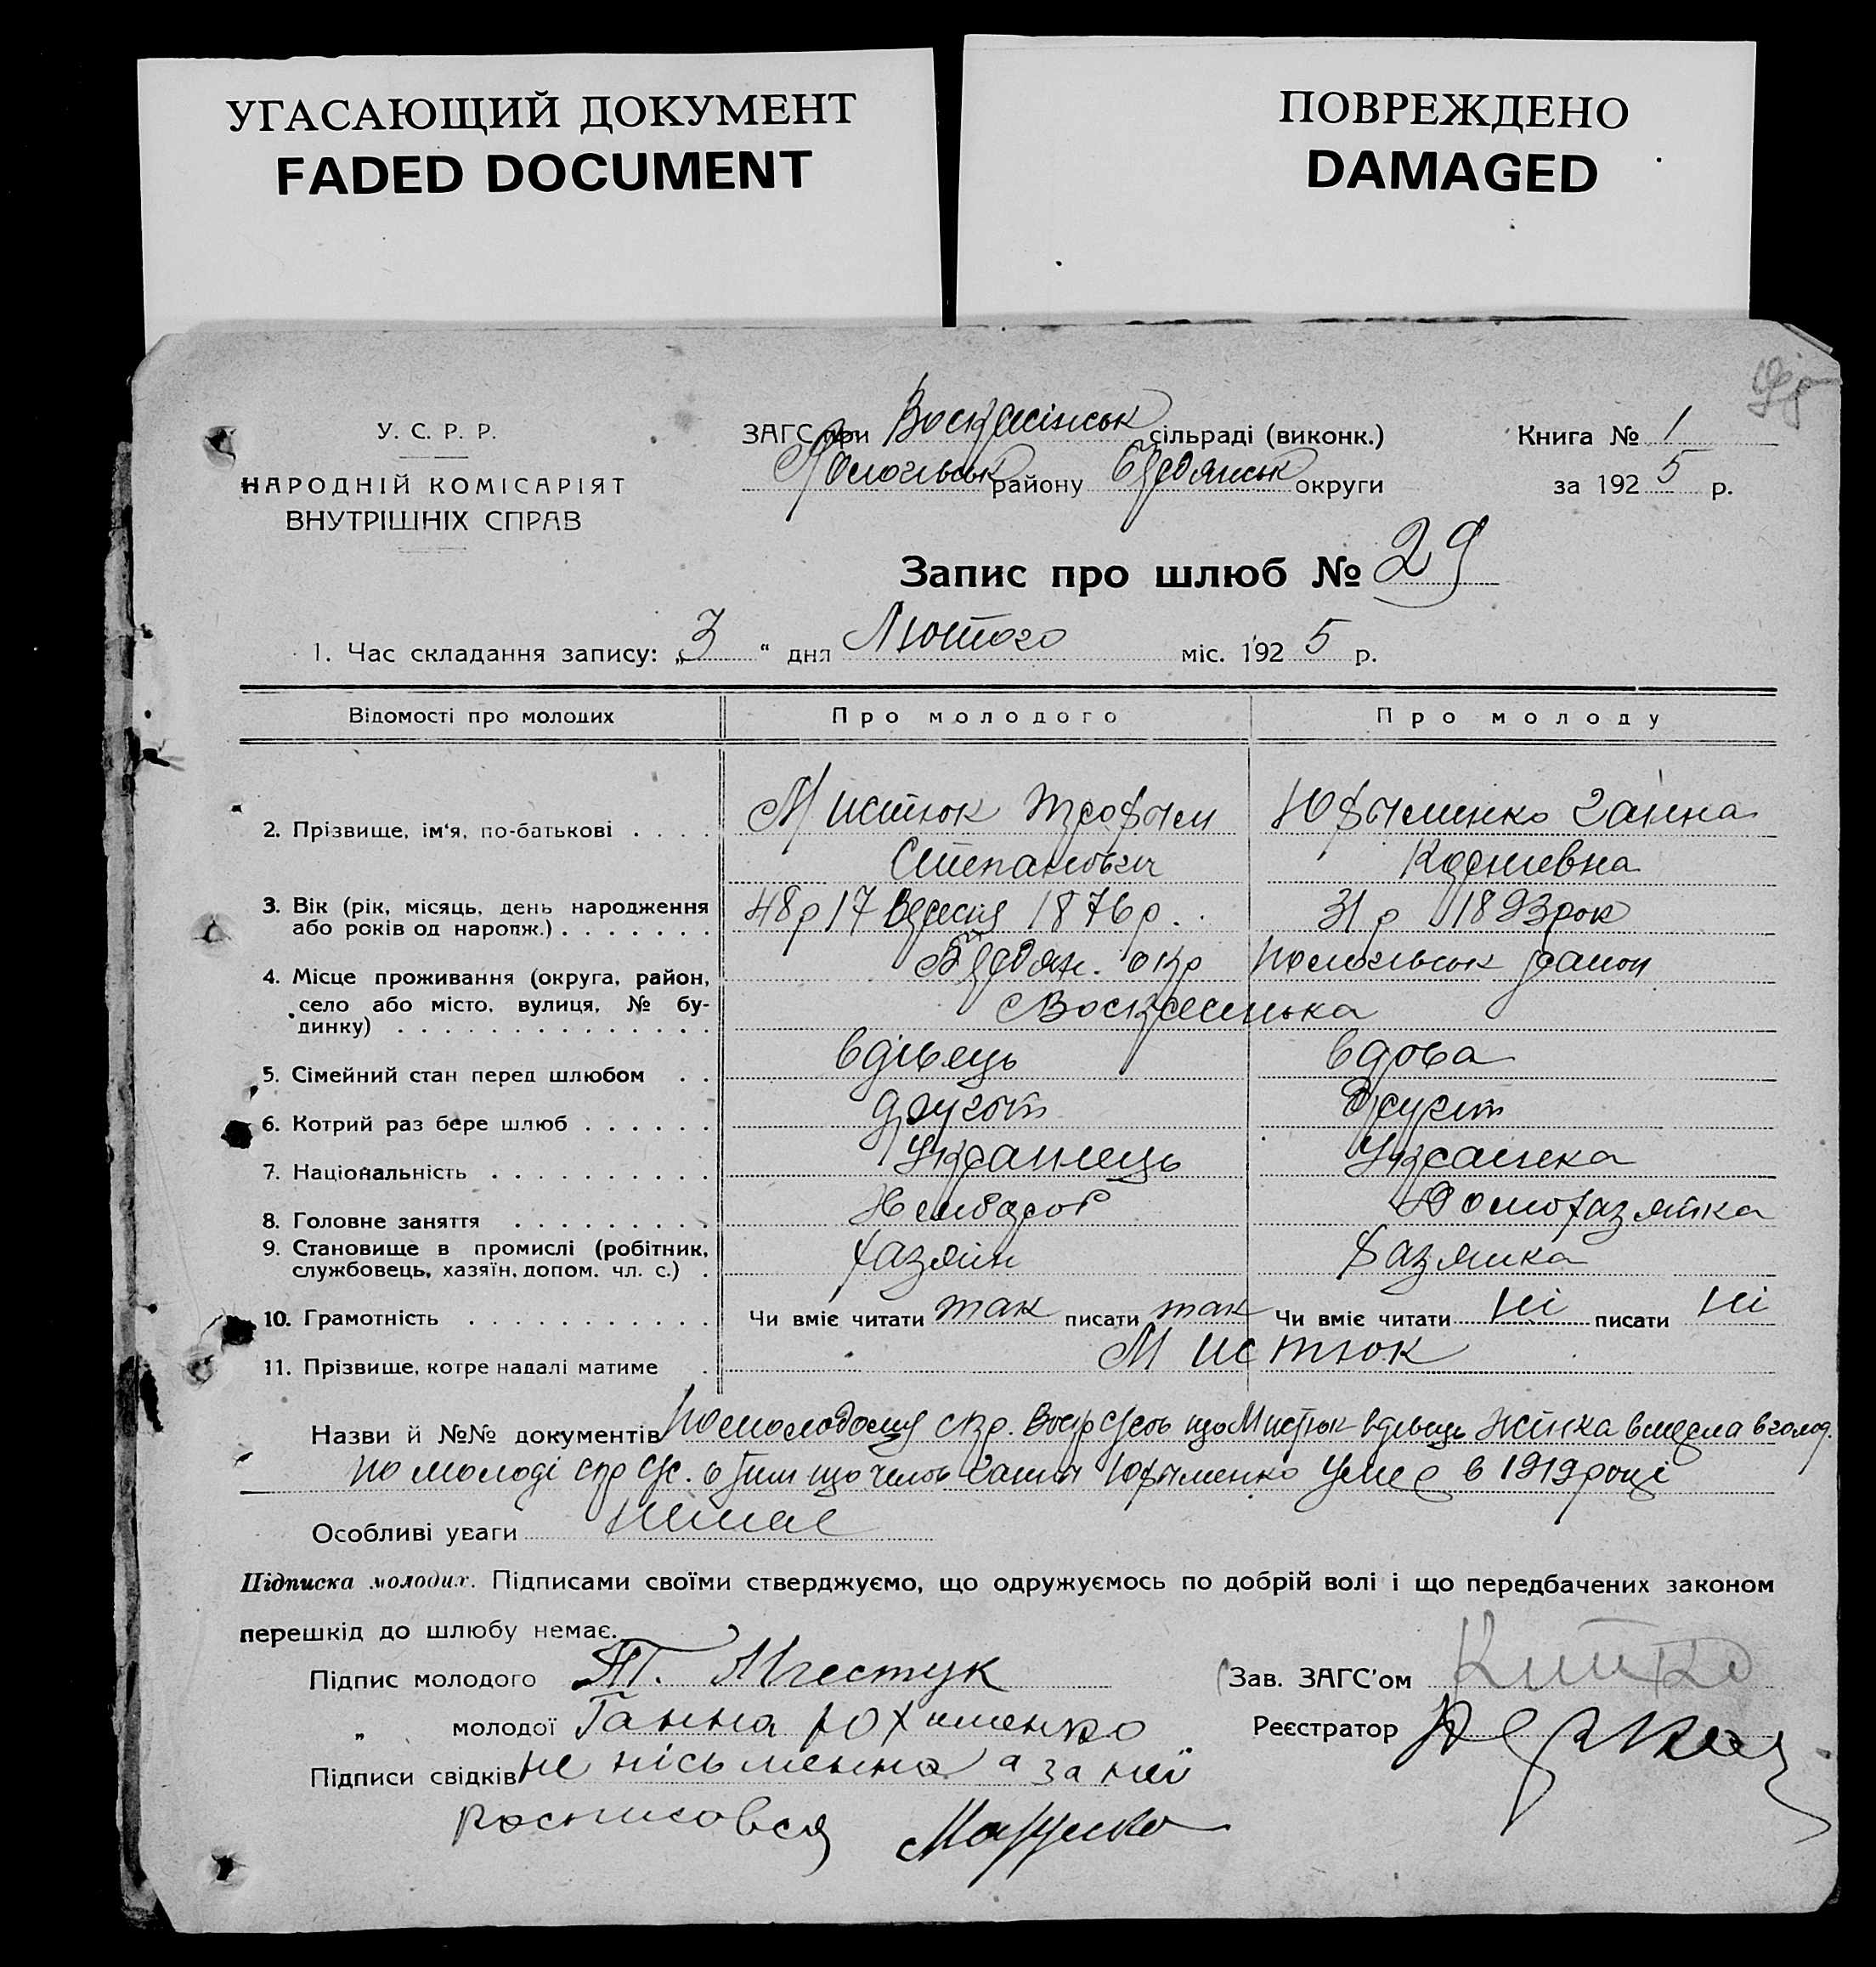 УГАСАЮЩИЙ ДОКУМЕНТ
FADED DOCUMENT
ПОВРЕЖДЕНО
DAMAGED
У. С. Р. Р.
НАРОДНІЙ КОМІСАРІЯТ
ВНУТРІШНІХ СПРАВ
ЗАГС при Воскресінськ сільраді (виконк.)
Пологівськ району Бердянськ округи
Книга № 1
за 1925 р.
Запис про шлюб № 29
1. Час складання запису: „3“ дня Лютого міс. 1925 р.
Відомості про молодих Про молодого Про молоду
2. Прізвище, ім'я, по-батькові . . . . Мистюк Трофым Юхыменко Ганна
Степанович Корніевна
3. Вік (рік, місяць, день народження або років од нарोдж.) . . . . . . . 48 р 17 Вересня 1876 р. 31 р 1893 рок
4. Місце проживання (округа, район, село або місто, вулиця, № будинку) . . . Бердян. окр Пологівськ район
Воскресенька
5. Сімейний стан перед шлюбом . . вдівець вдова
6. Котрий раз бере шлюб . . . . . . другот другит
7. Національність . . . . . . . . . . Украинець Украинка
8. Головне заняття . . . . . . . . . Хлібороб Домохазяйка
9. Становище в промислі (робітник, службовець, хазяїн, допом. чл. с.) . хазяін Хазяика
10. Грамотність . . . . . . . . . . . Чи вміє читати так писати так Чи вміє читати ні писати ні
11. Прізвище, котре надалі матиме . Мистюк
Назви й №№ документів По молодому спр. що Мистюк вдівець Жінка вмерла в голод.
По молоді спр що Ганны Юхыменко умер в 1919 році
Особливі уваги Немає
Підписка молодих. Підписами своїми стверджуємо, що одружуємось по добрій волі і що передбачених законом
перешкід до шлюбу немає.
Підпис молодого Т. Мистук Зав. ЗАГС'ом
„ молодої Ганна Юхименко Реєстратор
Підписи свідків не письменна а за неї
росписався